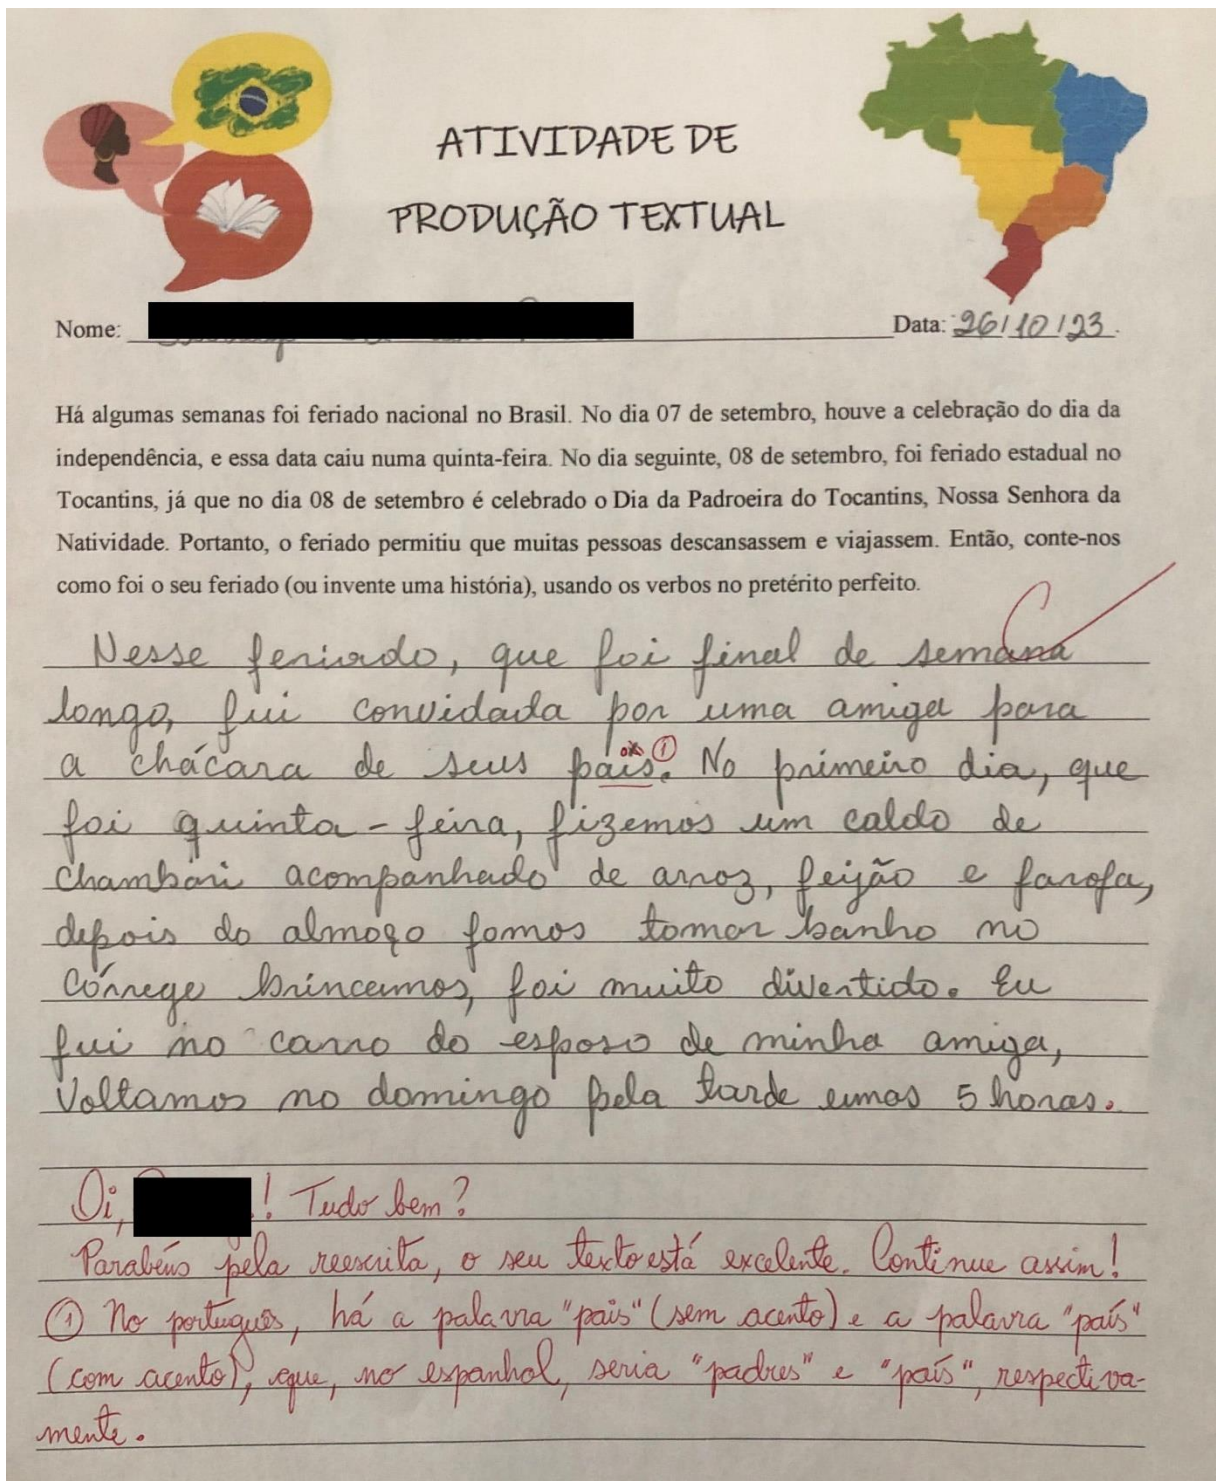 ATIVIDADE DE
PRODUÇÃO TEXTUAL
Nome:
Data: 26/10/23.
Há algumas semanas foi feriado nacional no Brasil. No dia 07 de setembro, houve a celebração do dia da
independência, e essa data caiu numa quinta-feira. No dia seguinte, 08 de setembro, foi feriado estadual no
Tocantins, já que no dia 08 de setembro é celebrado o Dia da Padroeira do Tocantins, Nossa Senhora da
Natividade. Portanto, o feriado permitiu que muitas pessoas descansassem e viajassem. Então, conte-nos
como foi o seu feriado (ou invente uma história), usando os verbos no pretérito perfeito.
Nesse feriado, que foi final de semana
longo, fui convidada por uma amiga para
a chácara de seus país. ① No primeiro dia, que
foi quinta-feira, fizemos um caldo de
chambari acompanhado de arroz, feijão e farofa,
depois do almoço fomos tomar banho no
córrego brincamos, foi muito divertido. Eu
fui no carro do esposo de minha amiga,
Voltamos no domingo pela tarde umas 5 horas.
Oi, ! Tudo bem?
Parabéns pela reescrita, o seu texto está excelente. Continue assim!
① No português, há a palavra "pais" (sem acento) e a palavra "país"
(com acento), que, no espanhol, seria "padres" e "país", respectiva-
mente.